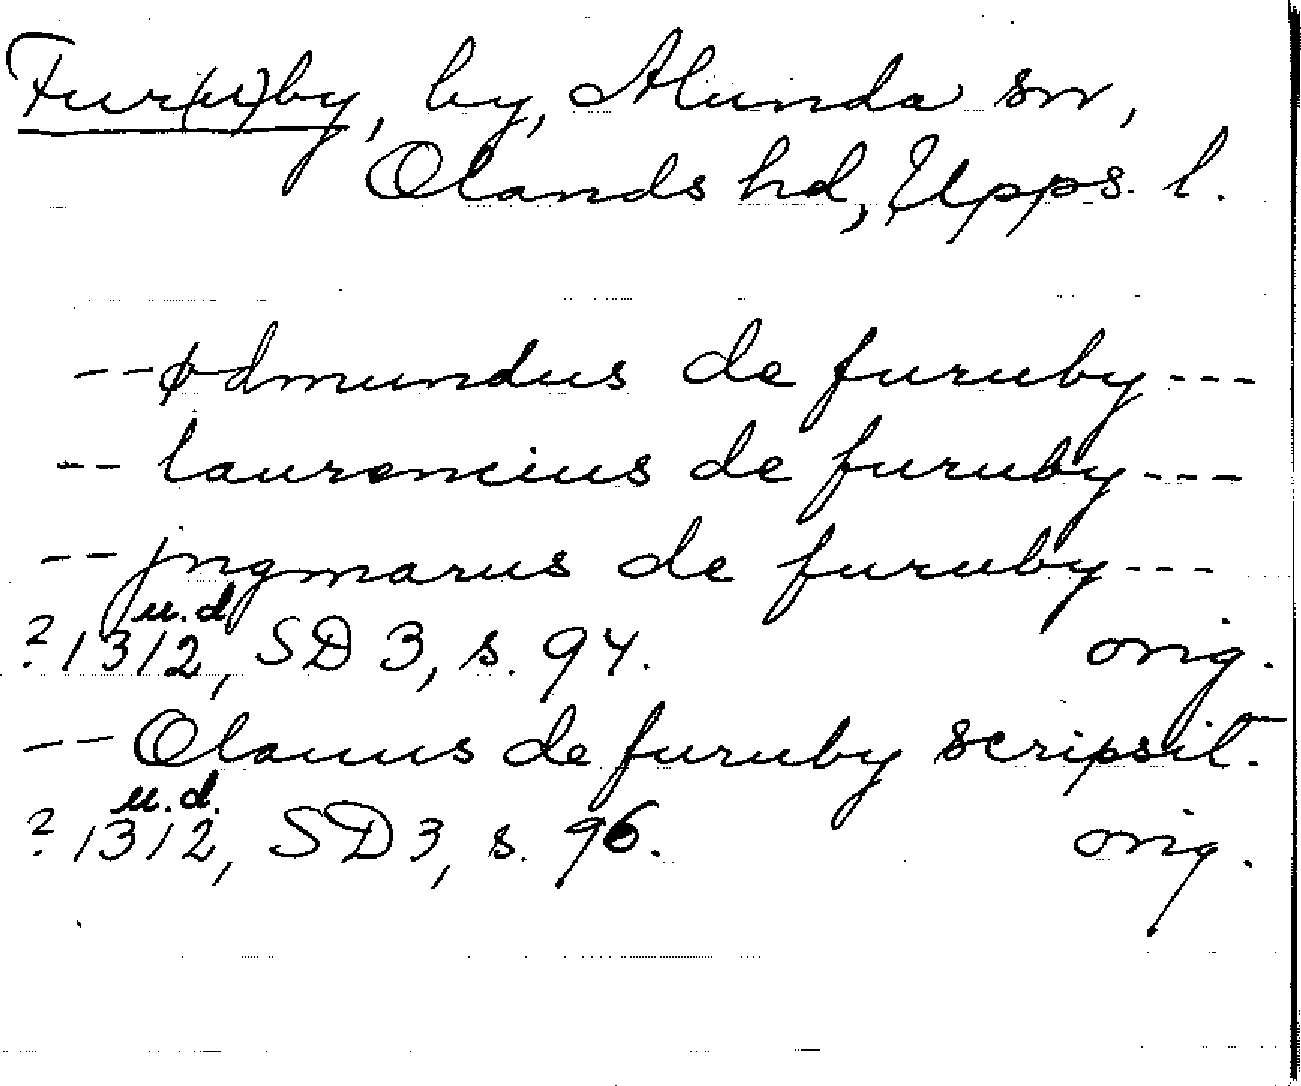 Fur(u)by, by, Alunda sn,
Olands hd, Upps. l.
-- ødmundus de furuby ---
-- laurencius de furuby ---
-- jngmarus de furuby ---
u.d.
? 1312, SD 3, s. 94. orig.
-- Olauus de furuby scripsit.
u.d.
? 1312, SD 3, s. 96. orig.